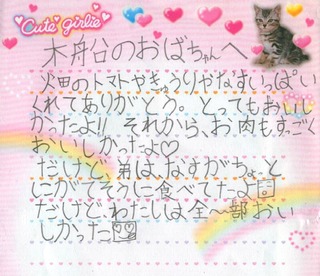 Cute girlie
木船谷のおばちゃんへ
火田のトマトやきゅうりやなすいっぱい
くれてありがとう。とってもおいし
かったよ!! それから、お肉もすっごく
おいしかったよ♡
だけど、弟は、なすがちょっと
にがてそうに食べてたよ
だけど、わたしは、全〜部おい
しかった